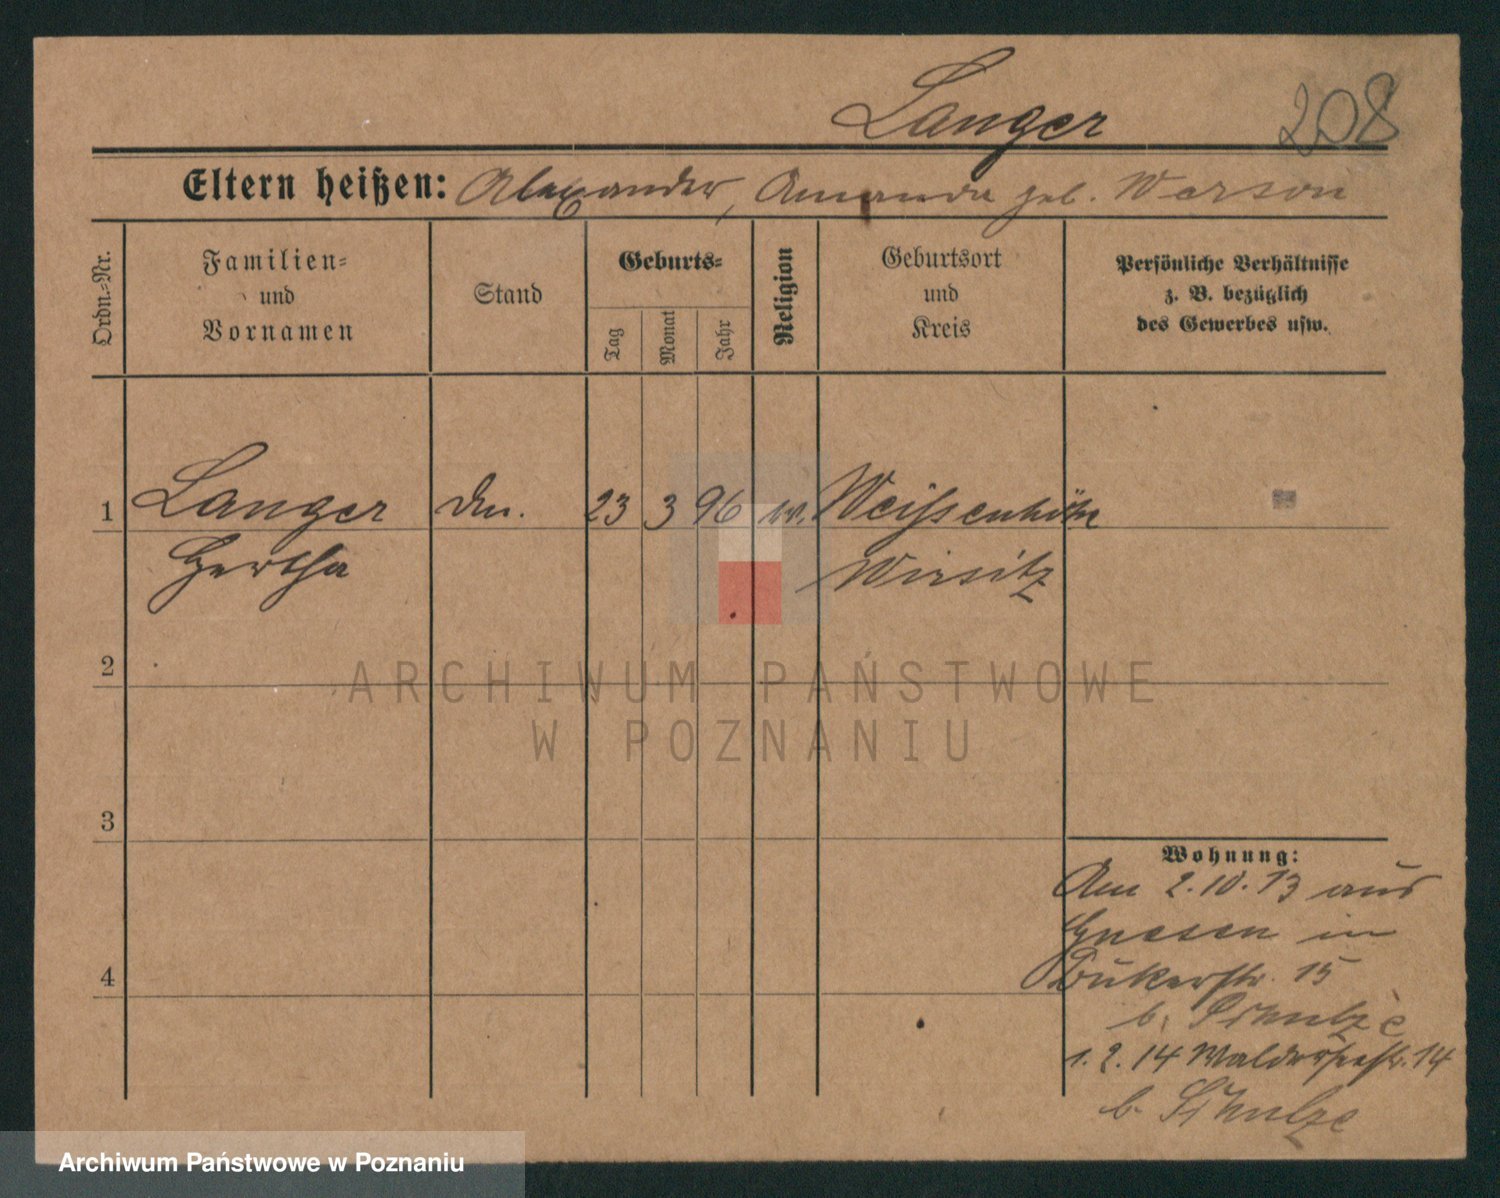 Langer 208
Eltern heißen: Alexander, Amanda geb. Warson
Ordn.-Nr.
Familien-
und
Vornamen
Stand
Geburts-
Tag
Monat
Jahr
Religion
Geburtsort
und
Kreis
Persönliche Verhältnisse
z. B. bezüglich
des Gewerbes usw.
1 Langer 23 3 96 Weißenhöhe
Hertha Wirsitz
2
3
4
Wohnung:
Am 2.10.13 aus
Gnesen in
15
b. Schulze
1.2.14 Walderseestr. 14
b. Schulze
ARCHIWUM PAŃSTWOWE
W POZNANIU
Archiwum Państwowe w Poznaniu